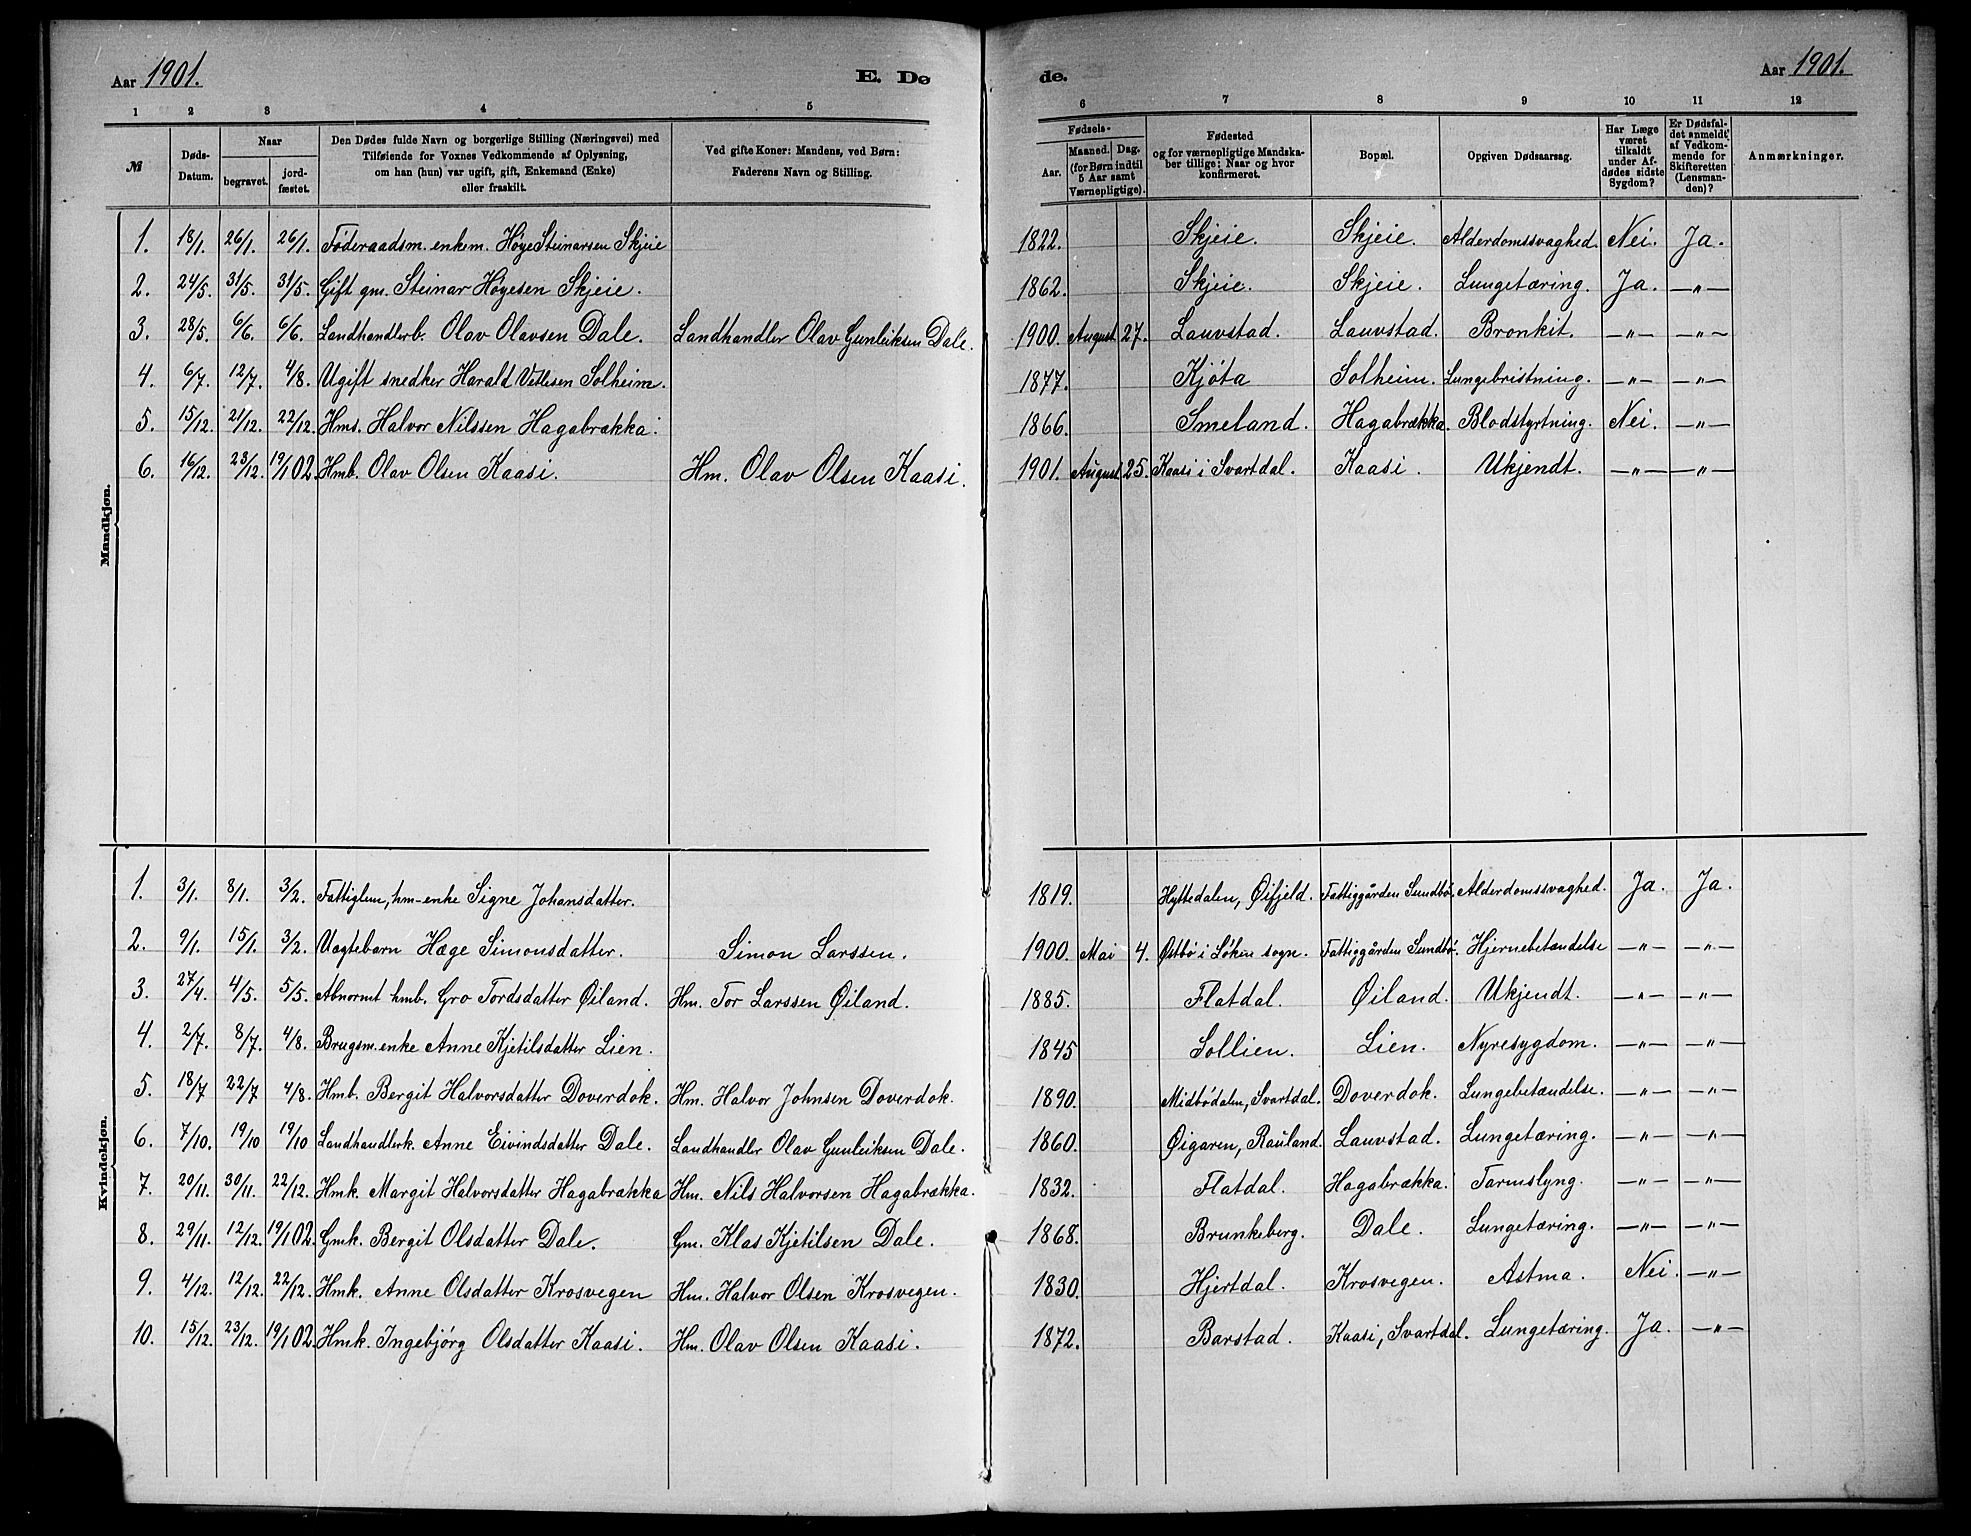 Aar 1901. E. Dø
1 2 3 4 5
№ Døds-Datum. Naar begravet. jord-fæstet. Den Dødes fulde Navn og borgerlige Stilling (Næringsvei) med Tilføiende for Voxnes Vedkommende af Oplysning, om han (hun) var ugift, gift, Enkemand (Enke) eller fraskilt. Ved gifte Koner: Mandens, ved Børn: Faderens Navn og Stilling.
Mandkjøn.
1. 18/1. 26/1. 26/1. Føderaadsm. enkem. Høye Steinarsen Skjeie
2. 24/5. 31/5. 31/5. Gift gm. Steinar Høyesen Skjeie.
3. 28/5. 6/6. 6/6. Landhandlerb. Olav Olavsen Dale. Landhandler Olav Gunleiksen Dale.
4. 6/7. 12/7. 4/8. Ugift snedker Harald Vetlesen Solheim.
5. 15/12. 21/12. 22/12. Hms. Halvor Nilssen Hagabrækka.
6. 16/12. 23/12. 19/1 02. Hmb. Olav Olsen Kaasi. Hm. Olav Olsen Kaasi.
Kvindekjøn.
1. 3/1. 8/1. 3/2. Fattiglem, hm-enke Signe Johansdatter.
2. 9/1. 15/1. 3/2. Uægtebarn Hæge Simonsdatter. Simon Larssen.
3. 27/4. 4/5. 5/5. Abnormt hmb. Gro Tordsdatter Øiland. Hm. Tor Larssen Øiland.
4. 2/7. 8/7. 4/8. Brugsm. enke Anne Kjetilsdatter Lien.
5. 18/7 22/7 4/8. Hmb. Bergit Halvorsdatter Doverdok. Hm. Halvor Johnsen Doverdok.
6. 7/10. 19/10 19/10 Landhandlerk. Anne Eivindsdatter Dale. Landhandler Olav Gunleiksen Dale.
7. 20/11. 30/11. 22/12. Hmk. Margit Halvorsdatter Hagabrækka Hm. Nils Halvorsen Hagabrækka.
8. 29/11. 12/12. 19/1 02. Gmk. Bergit Olsdatter Dale. Gm. Klas Kjetilsen Dale.
9. 4/12. 12/12. 22/12. Hmk. Anne Olsdatter Krosvegen Hm. Halvor Olsen Krosvegen.
10. 15/12. 23/12. 19/1 02. Hmk. Ingebjørg Olsdatter Kaasi. Hm. Olav Olsen Kaasi.
de. Aar 1901.
6 7 8 9 10 11 12
Fødsels- Aar. Maaned. Dag. (for Børn indtil 5 Aar samt Værnepligtige). Fødested og for værnepligtige Mandskaber tillige: Naar og hvor konfirmeret. Bopæl. Opgiven Dødsaarsag. Har Læge været tilkaldt under Afdødes sidste Sygdom? Er Dødsfaldet anmeldt, af Vedkommende for Skifteretten (Lensmanden)? Anmærkninger.
1822. Skjeie. Skjeie. Alderdomssvaghed. Nei. Ja.
1862. Skjeie. Skjeie. Lungetæring. Ja. —"—
1900. August 27. Lauvstad. Lauvstad. Bronkit. —"— —"—
1877. Kjøta Solheim. Lungebristning. —"— —"—
1866. Smeland. Hagabrækka. Blodstyrtning. Nei. —"—
1901. August 25. Kaasi i Svartdal. Kaasi. Ukjendt. —"— —"—
1819. Hyttedalen, Øifjeld. Fattiggården Sundbø. Alderdomssvaghed. Ja. Ja.
1900. Mai 4. Østbø i Løken sogn. Fattiggården Sundbø. Hjernebetændelse —"— —"—
1885. Flatdal. Øiland. Ukjendt. —"— —"—
1845 Sollien. Lien. Nyresygdom. —"— —"—
1890. Midbødalen, Svartdal. Doverdok. Lungebetændelse. —"— —"—
1860. Øigaren, Rauland. Lauvstad. Lungetæring. —"— —"—
1832. Flatdal. Hagabrækka. Tarmslyng. —"— —"—
1868. Brunkeberg. Dale. Lungetæring. —"— —"—
1830. Hjertdal. Krosvegen. Astma. Nei. —"—
1872. Barstad. Kaasi, Svartdal. Lungetæring. Ja. —"—